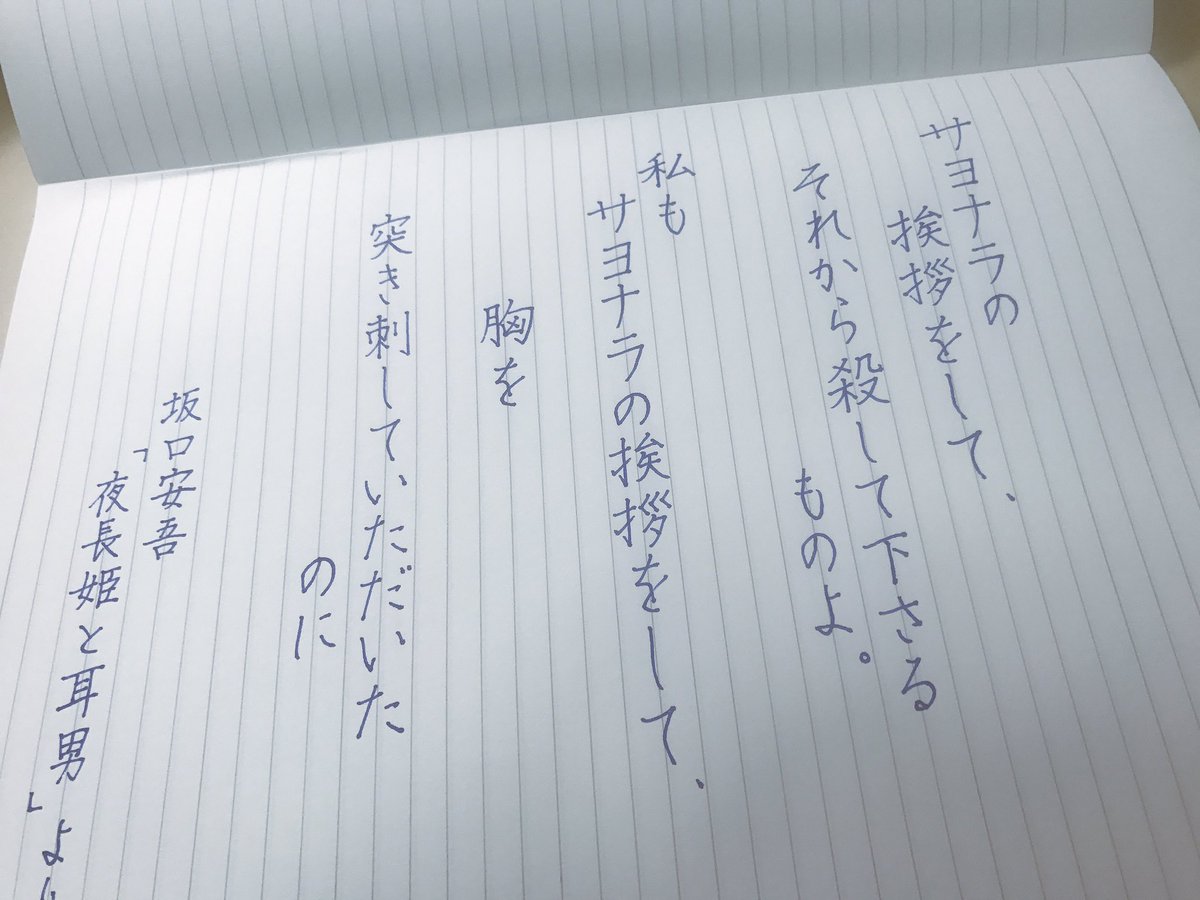 サヨナラの
挨拶をして、
それから殺して下さる
ものよ。
私も
サヨナラの挨拶をして、
胸を
突き刺していただいた
のに
坂口安吾
「夜長姫と耳男」より